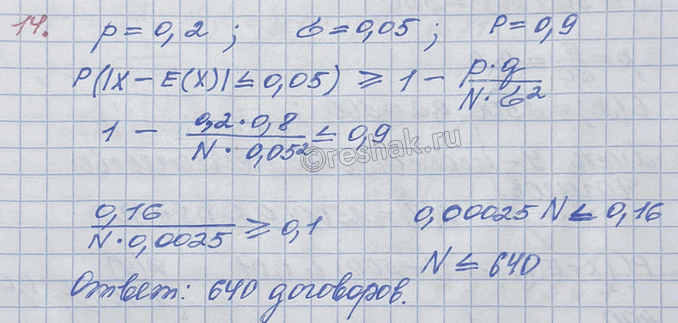 14. p = 0,2 ; б = 0,05 ; P = 0,9
P(|X – E(X)| ≤ 0,05) ⩾ 1 – p·q / N·б²
1 – 0,2·0,8 / N·0,05² ≤ 0,9
©reshak.ru
0,16 / N·0,0025 ⩾ 0,1 0,00025 N ≤ 0,16
N ≤ 640
Ответ: 640 договоров.